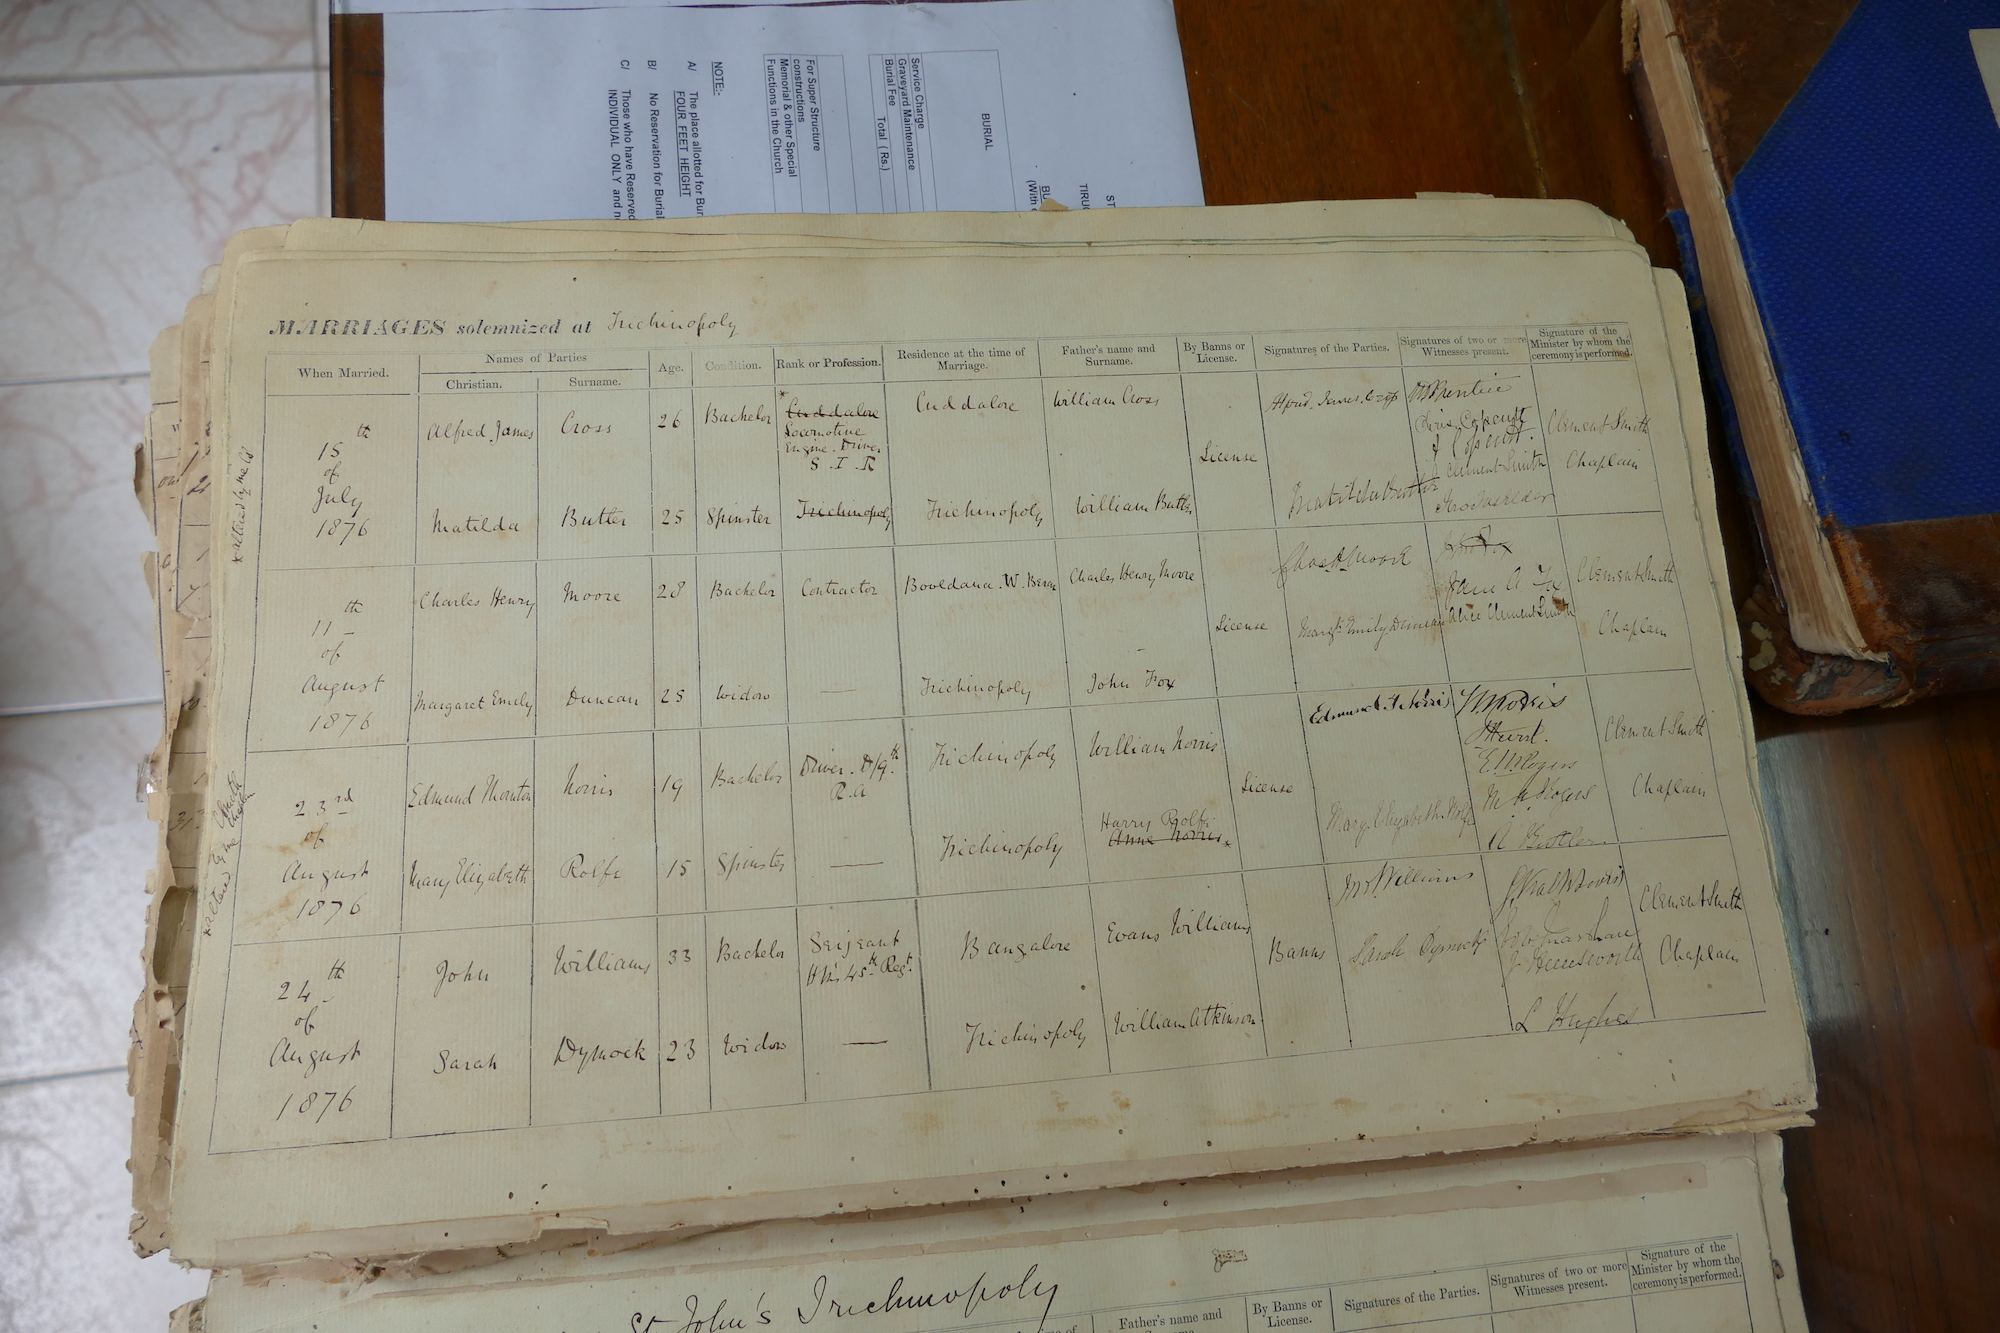 BURIAL
Service Charge
Graveyard Maintenance
Burial Fee Total ( Rs.)
For Super Structure
constructions
Memorial & other Special
Functions in the Church
NOTE:-
A/ The place allotted for Bur
FOUR FEET HEIGHT
B/ No Reservation for Burial
C/ Those who have Reserved
INDIVIDUAL ONLY and n
MARRIAGES solemnized at Trichinopoly
When Married.
Names of Parties
Christian.
Surname.
Age.
Condition.
Rank or Profession.
Residence at the time of
Marriage.
Father's name and
Surname.
By Banns or
License.
Signatures of the Parties.
Signatures of two or more
Witnesses present.
Signature of the
Minister by whom the
ceremony is performed.
15th
of
July
1876
Alfred James
Cross
26
Bachelor
* Cuddalore
Locomotive
Engine Driver
S. I. R
Cuddalore
William Cross
License
Clement Smith
Chaplain
Matilda
Butler
25
Spinster
Trichinopoly
Trichinopoly
William Butler
Matilda Butler
Clement Smith
11th
of
August
1876
Charles Henry
Moore
28
Bachelor
Contractor
Booldana. W. Berar
Charles Henry Moore
License
Chas H Moore
Clement Smith
Chaplain
Margaret Emily
Duncan
25
Widow
—
Trichinopoly
John Fox
Margt. Emily Duncan
Alice Clement Smith
23rd
of
August
1876
Edmund Thornton
Norris
19
Bachelor
Driver. D/9th
R. A
Trichinopoly
William Norris
License
Edmund T. Norris
W Norris
Hurst.
E. M Rogers
Clement Smith
Chaplain
Mary Elizabeth
Rolfe
15
Spinster
—
Trichinopoly
Harry Rolfe
Anne Norris *
Mary Elizabeth Rolfe
A Butler.
24th
of
August
1876
John
Williams
33
Bachelor
Serjeant
HM's 45th Regt.
Bangalore
Evans Williams
Banns
Jno Williams
Clement Smith
Chaplain
Sarah
Dymock
23
Widow
—
Trichinopoly
William Atkinson
Sarah Dymock
L Hughes
St John's Trichinopoly
Father's name and
By Banns or
License.
Signatures of the Parties.
Signatures of two or more
Witnesses present.
Signature of the
Minister by whom the
ceremony is performed.